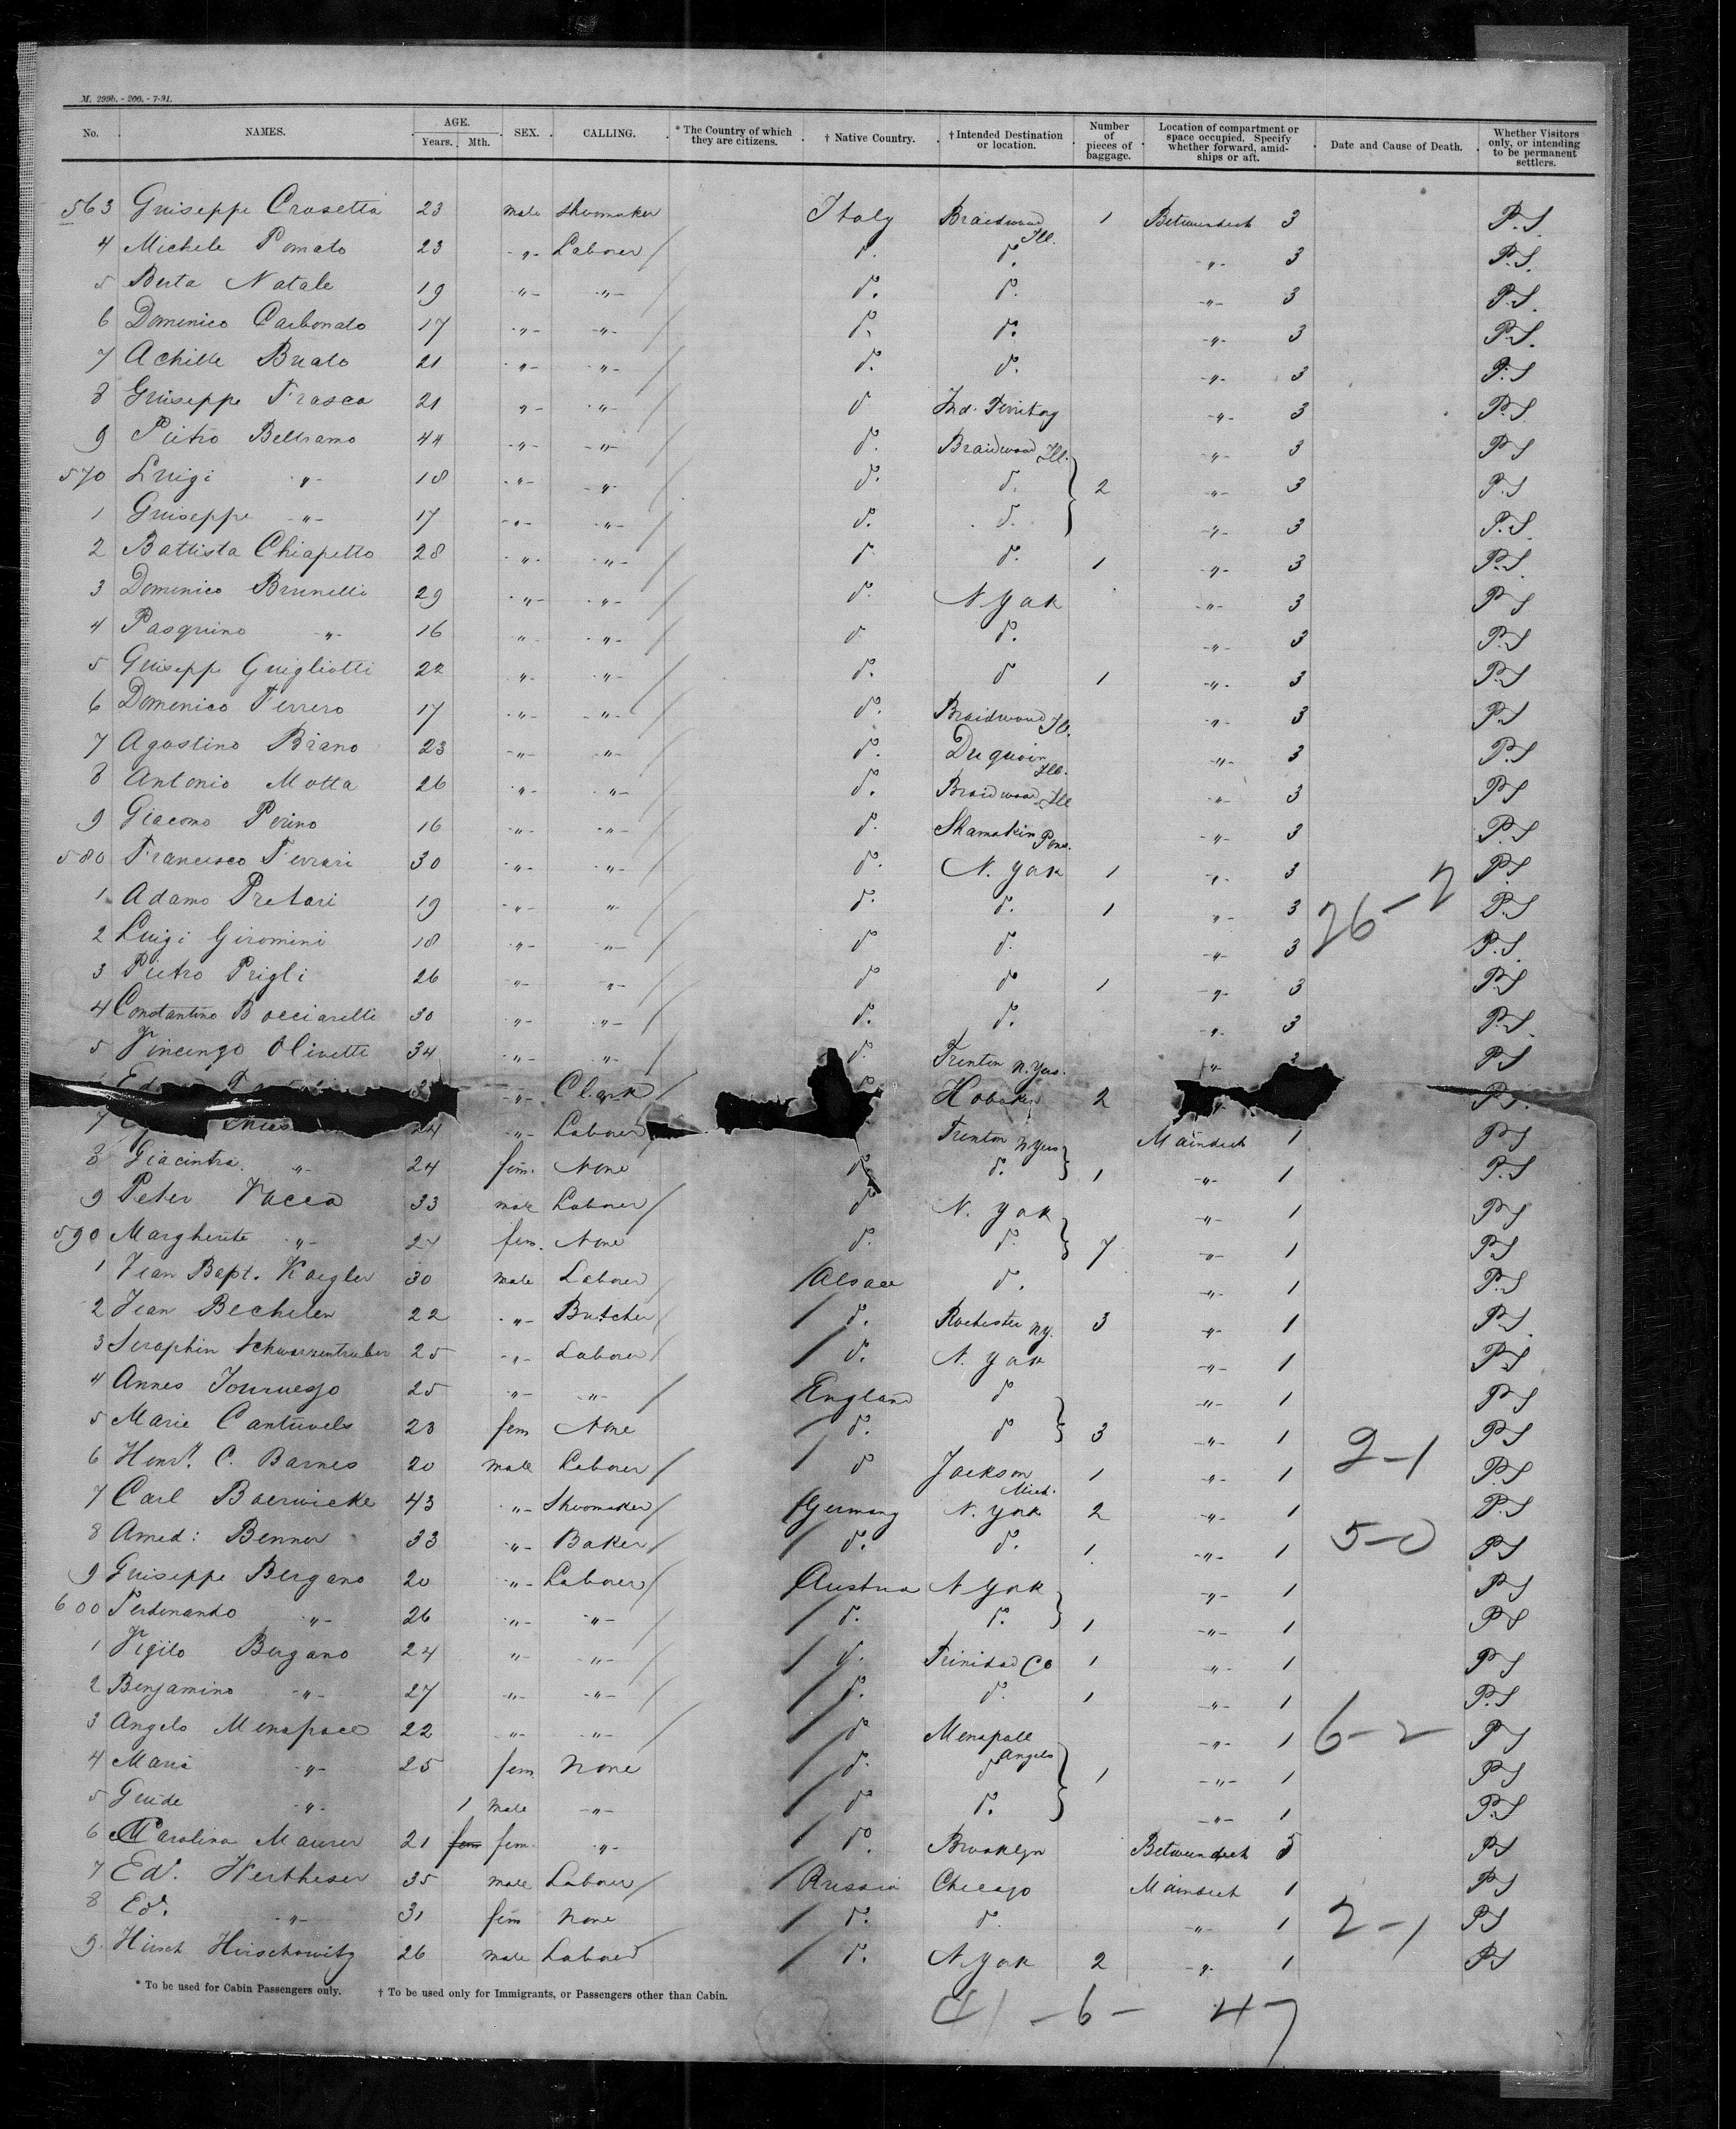 M. 299b. - 200. - 7-91.
No. NAMES. AGE. Years. Mth. SEX. CALLING. * The Country of which they are citizens. † Native Country. † Intended Destination or location. Number of pieces of baggage. Location of compartment or space occupied. Specify whether forward, amidships or aft. Date and Cause of Death. Whether Visitors only, or intending to be permanent settlers.
563 Guiseppe Crosetta 23 male Shoemaker Italy Braidwood Ill. 1 Betweendeck 3 P.S.
4 Michele Pomato 23 -"- Laborer / d. d. -"- 3 P.S.
5 Berta Natale 19 -"- -"- / d. d. -"- 3 P.S.
6 Domenico Carbonato 17 -"- -"- / d. d. -"- 3 P.S.
7 Achille Bualo 21 -"- -"- / d. d. -"- 3 P.S
8 Guiseppe Frasca 21 -"- -"- / d Ind. Territory -"- 3 P.S
9 Pietro Beltramo 44 -"- -"- / d. Braidwood Ill. -"- 3 P.S
570 Luigi -"- 18 -"- -"- / d. d. 2 -"- 3 P.S
1 Guiseppe -"- 17 -"- -"- / d. d. -"- 3 P.S
2 Battista Chiapetto 28 -"- -"- / d. d. 1 -"- 3 P.S.
3 Domenico Brunelli 29 -"- -"- / d. N. York -"- 3 P.S
4 Pasquino -"- 16 -"- -"- / d d. -"- 3 P.S
5 Guiseppe Guigliotti 22 -"- -"- / d. d 1 -"- 3 P.S
6 Domenico Ferrero 17 -"- -"- / d. Braidwood Ill. -"- 3 P.S
7 Agostino Briano 23 -"- -"- / d. Duquoin Ill. -"- 3 P.S
8 Antonio Motta 26 -"- -"- / d. Braidwood Ill -"- 3 P.S
9 Giacomo Perino 16 -"- -"- / d. Shamokin Penn. -"- 3 P.S
580 Francesco Ferrari 30 -"- -"- / d. N. York 1 -"- 3 P.S
1 Adamo Pretari 19 -"- -"- / d. d. 1 -"- 3 26-2 P.S
2 Luigi Giromini 18 -"- -"- / d d. -"- 3 P.S.
3 Pietro Prigli 26 -"- -"- / d d 1 -"- 3 P.S
4 Constantino Bocciarelli 30 -"- -"- / d. d. -"- 3 P.S.
5 Vincenzo Olivetti 34 -"- -"- / d. Trenton N. Yers. -"- 3 P.S
-"- Clerk / Hoboken 2 -"- P.S.
7 24 -"- Laborer Trenton N. Yers Maindeck 1 P.S
8 Giacinta -"- 24 fem. None d. d. 1 -"- 1 P.S
9 Peter Vacca 33 male Laborer / d N. York -"- 1 P.S
590 Margherite -"- 27 fem. None d. d. 7 -"- 1 P.S
1 Jean Bapt. Koegler 30 male Laborer / Alsace d. -"- 1 P.S
2 Jean Bechelen 22 -"- Butcher / d. Rochester NY. 3 -"- 1 P.S.
3 Seraphin Schwarzentruber 25 -"- Laborer / d. N. York -"- 1 P.S
4 Annes 25 -"- -"- / England d -"- 1 P.S
5 Marie Cantuvels 23 fem None / d. d 3 -"- 1 P.S
6 Henr. C. Barnes 20 male Laborer / d Jackson Mich. 1 -"- 1 2-1 P.S
7 Carl Baerwicke 43 -"- Shoemaker / Germany N. York 2 -"- 1 P.S
8 Amed: Benner 33 -"- Baker / d. d. 1 -"- 1 5-0 P.S
9 Guiseppe Bergano 20 -"- Laborer / Austria N. York -"- 1 P.S
600 Ferdenando -"- 26 -"- -"- / d. d. 1 -"- 1 P.S
1 Vigilo Bergano 24 -"- -"- / d. Trinidad Co 1 -"- 1 P.S
2 Benjamino -"- 27 -"- -"- / d. d. 1 -"- 1 P.S
3 Angelo Menapace 22 -"- -"- / d Menapall Angels -"- 1 6-2 P.S
4 Maria -"- 25 fem. None / d. d 1 -"- 1 P.S
5 Guide -"- 1 male -"- / d d. -"- 1 P.S
6 Carolina Maurer 21 fem fem. -"- / d. Brooklyn Betweendeck 5 P.S
7 Ed. Wertheser 35 male Laborer / Russia Chicago Maindeck 1 P.S
8 Ed. -"- 31 fem None / d. d. -"- 1 2-1 P.S
9. Hirsch Hirschowitz 26 male Laborer / d. N. York 2 -"- 1 P.S
* To be used for Cabin Passengers only. † To be used only for Immigrants, or Passengers other than Cabin.
41 - 6 - 47